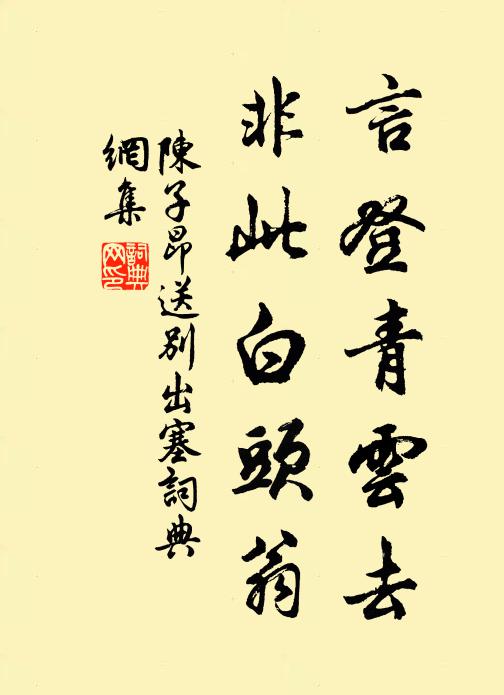 言登青雲去
非此白頭翁
陳子昂送別出塞詞典
網集
詞典
网印